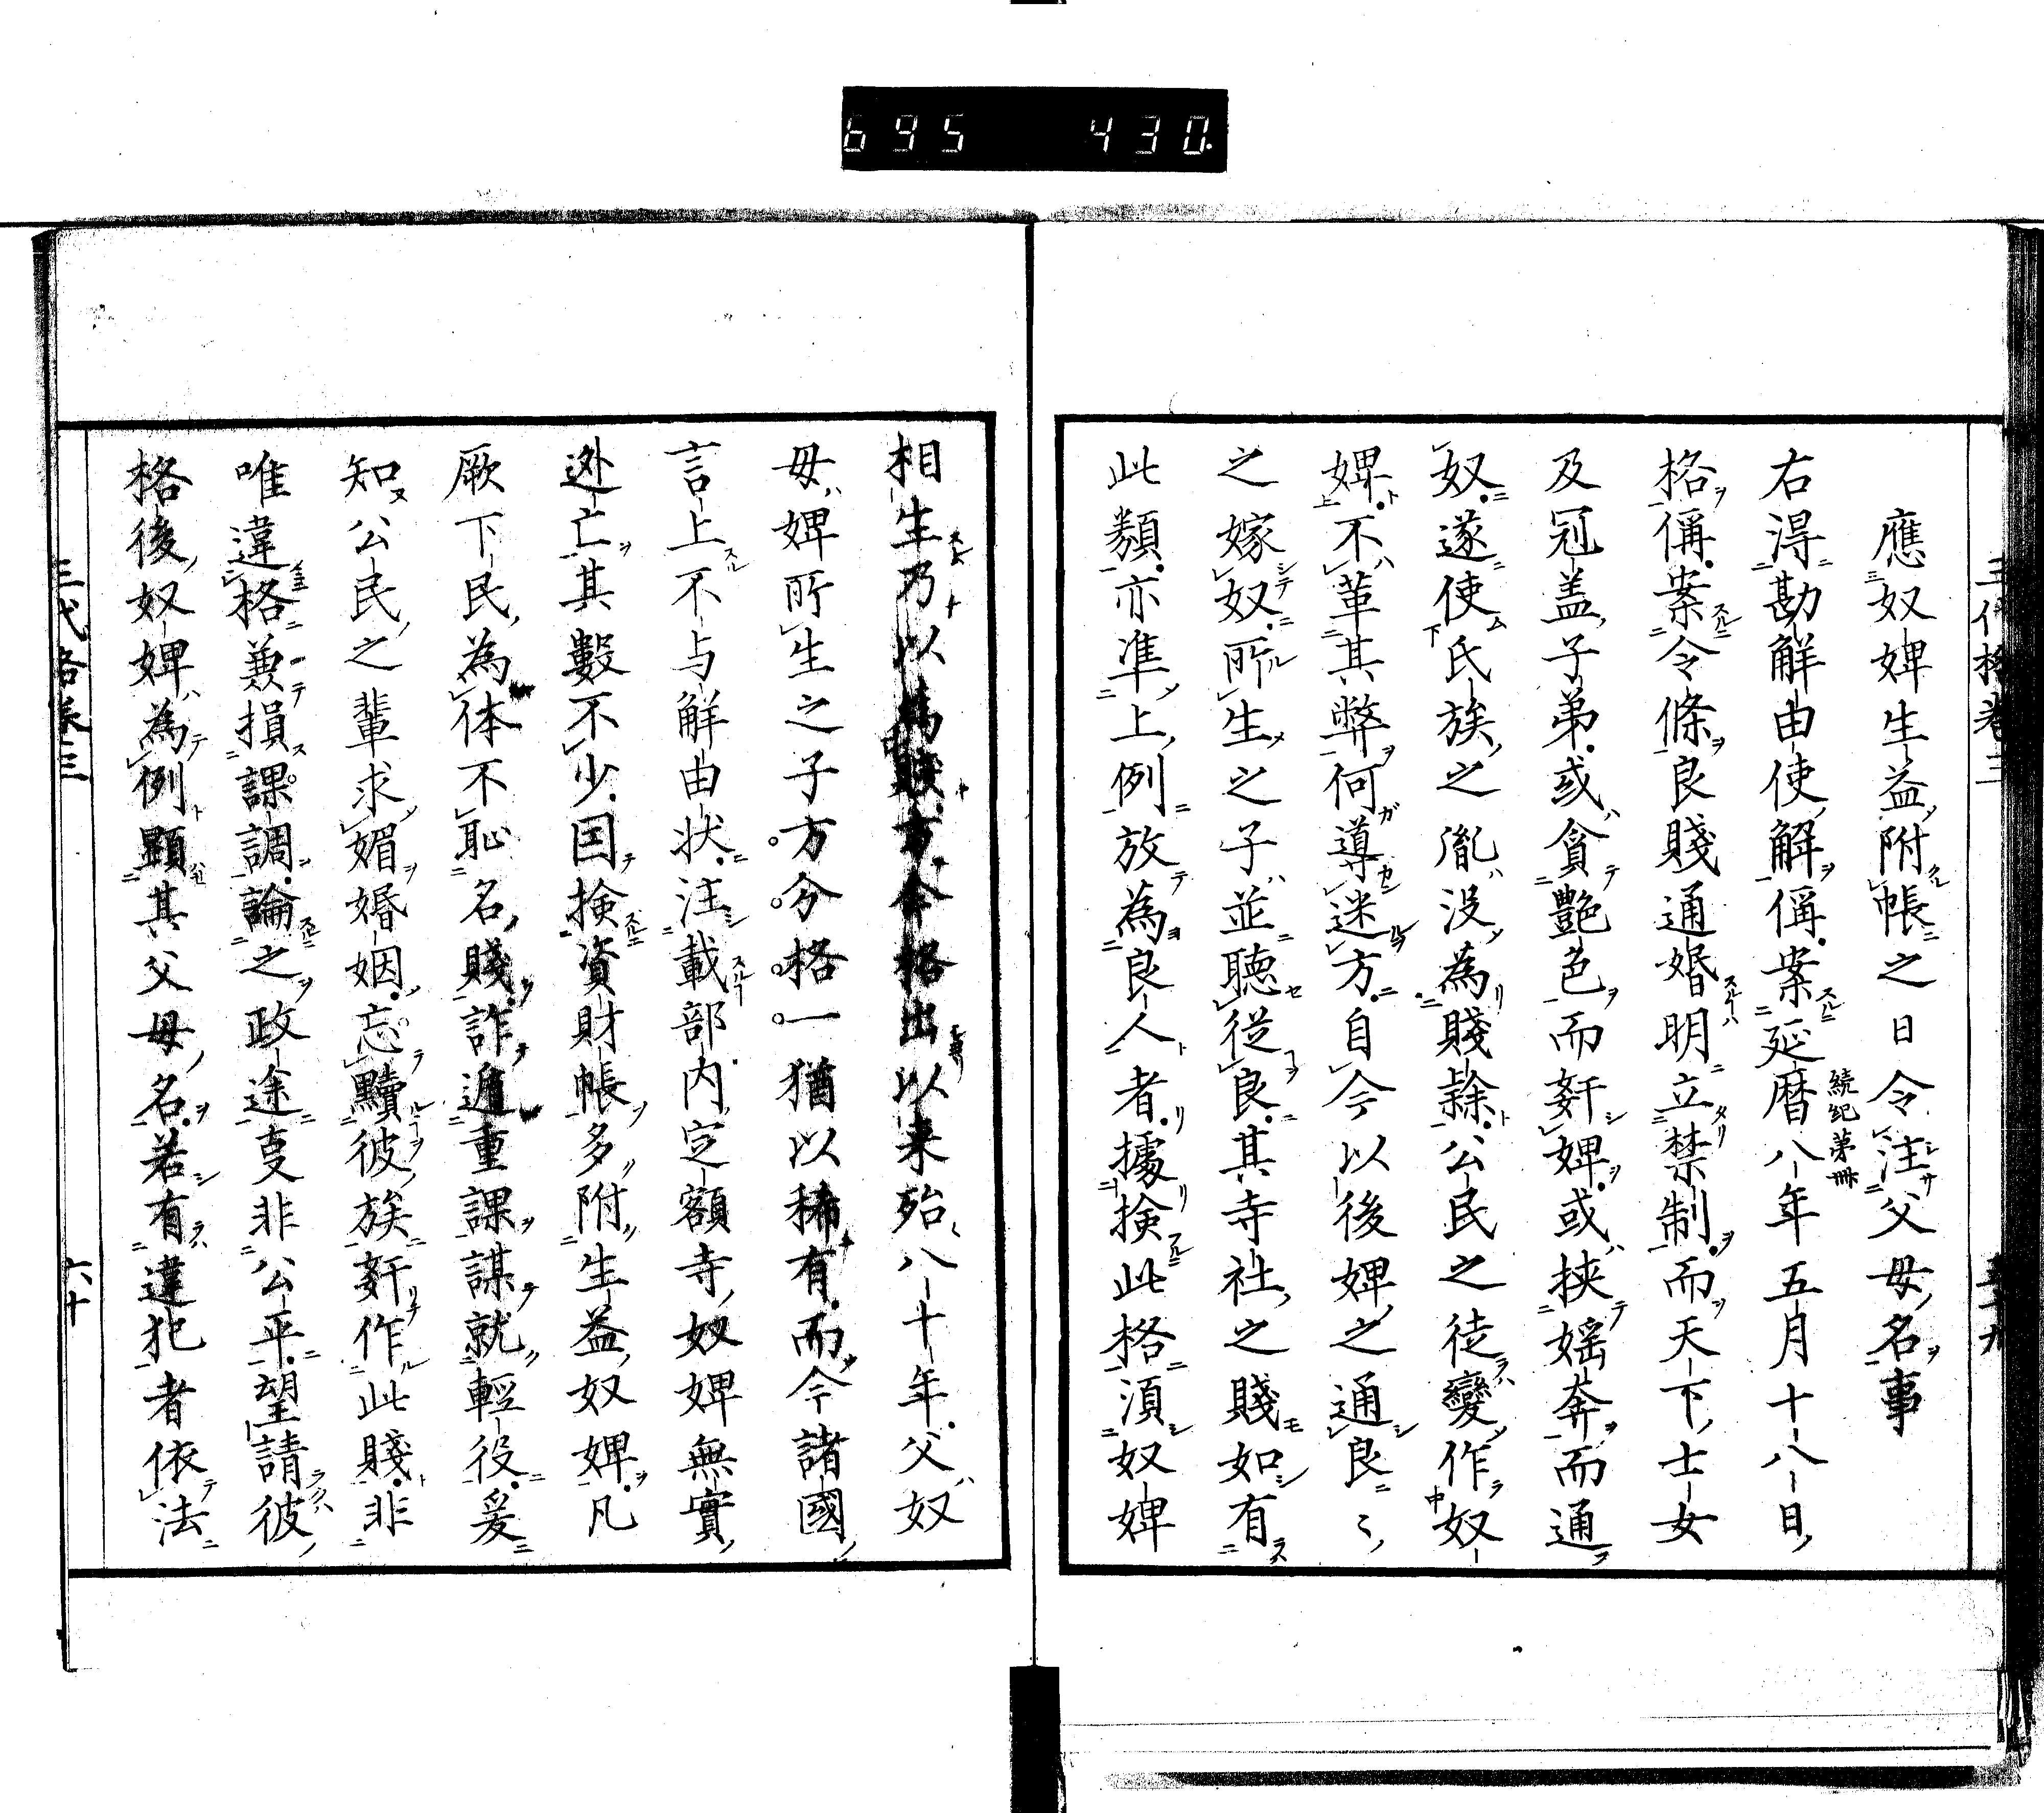 695 430
三代格卷三
應奴婢生益附帳之日令注父母名事
右得勘解由使解偁案延暦八年五月十八日
続紀第卌
格偁案令條良賤通婚明立禁制而天下士女
及冠盖子弟或貪艶色而姧婢或挟媱奔而通
奴遂使氏族之胤没為賤隷公民之徒變作奴
婢不革其弊何導迷方自今以後婢之通良〻
之嫁奴所生之子並聴從良其寺社之賤如有
此類亦準上例放為良人者據検此格須奴婢
相生乃以為賤方今格出以来殆八十年父奴
母婢所生之子方今格一猶以稀有而今諸國
言上不与解由状注載部内定額寺奴婢無實
迯亡其數不少因検資財帳多附生益奴婢凡
厥下民為体不恥名賤詐遁重課謀就輕役爰
知公民之輩求媚婚姻忘黷彼族姧作此賤非
唯違格兼損課調論之政途㕝非公平望請彼
格後奴婢為例顕其父母名若有違犯者依法
三代格巻三
六十